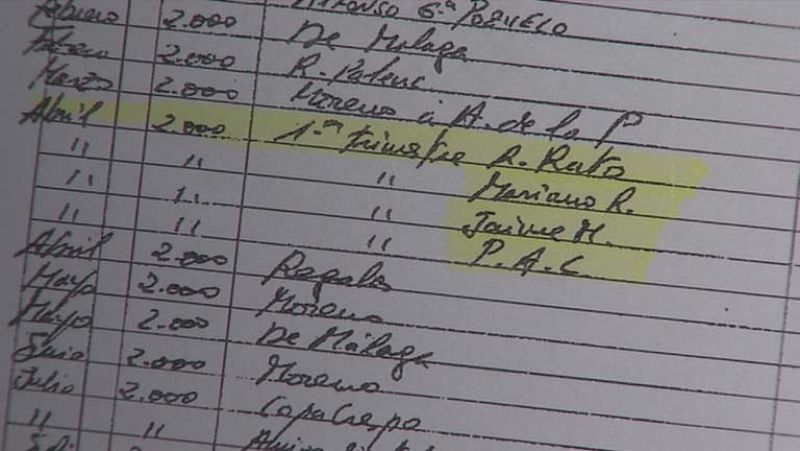 Febrero 2.000 Alfonso G.ª Pozuelo
Febrero 2.000 De Málaga
Marzo 2.000 R. Palenc
Abril 2.000 Moreno a A. de la P
" " 1er trimestre R. Rato
" " " Mariano R.
" " " Jaime M.
" " P.A.C
Abril 2.000 Regalos
Mayo 2.000 Moreno
Mayo 2.000 De Málaga
Junio 2.000 Moreno
Julio 2.000
" "